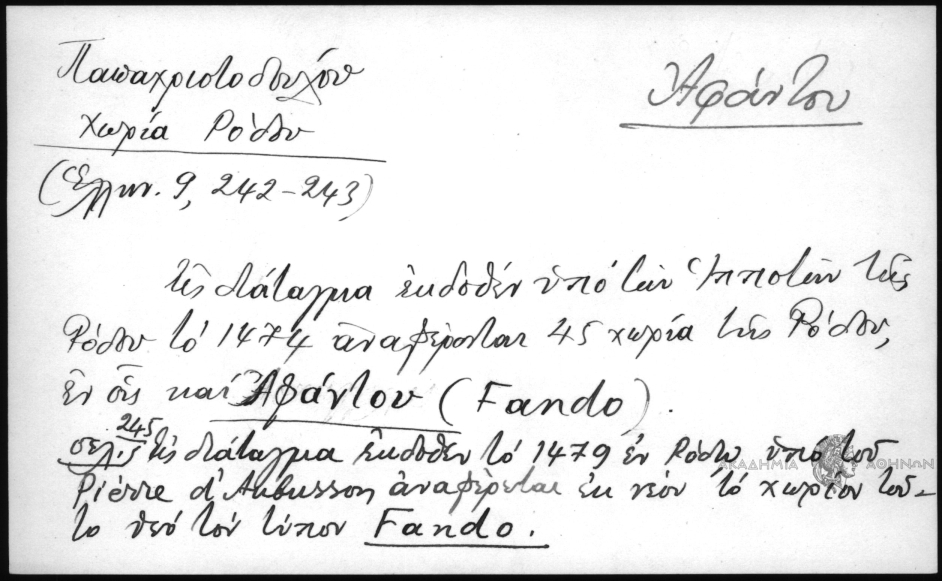 Παπαχριστοδούλου
Χωρία Ρόδου
(Ἑλλην. 9, 242-243)
Ἀφάντου
Εἰς διάταγμα ἐκδοθέν ὑπό τῶν Ἱπποτῶν τῆς
Ρόδου τό 1474 ἀναφέρονται 45 χωρία τῆς Ρόδου,
ἐν οἷς καί Ἀφάντου (Fando).
σελ. 245 Εἰς διάταγμα ἐκδοθέν τό 1479 ἐν Ρόδῳ ὑπό τοῦ
Pierre d'Aubusson ἀναφέρεται ἐκ νέου τό χωρίον τοῦ-
το ὑπό τόν τύπον Fando.
ΑΚΑΔΗΜΙΑ ΑΘΗΝΩΝ